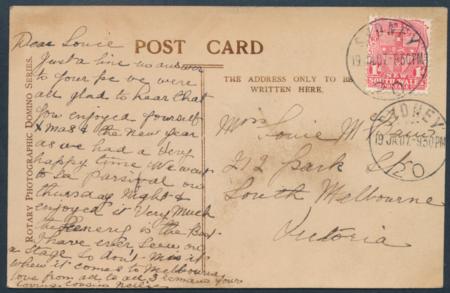 POST CARD
THE ADDRESS ONLY TO BE
WRITTEN HERE.
ROTARY PHOTOGRAPHIC DOMINO SERIES.
Dear Louie
Just a line in answer
to your pc we were
all glad to hear that
you enjoyed yourself
Xmas & the New year
as we had a very
happy time We went
to see Parsifal on
Thursday Night &
enjoyed it Very Much
the scenery is the Best
I have ever seen on
a Stage so don't Miss it
when it comes to Melbourne
love from all to all I remain your
loving cousin Nellie
Miss Louie M
212 Park St
South Melbourne
Victoria
SYDNEY
19 JA 07 9 30 PM
SYDNEY
19 JA 07 9 30 PM
NEW
SOUTH WALES